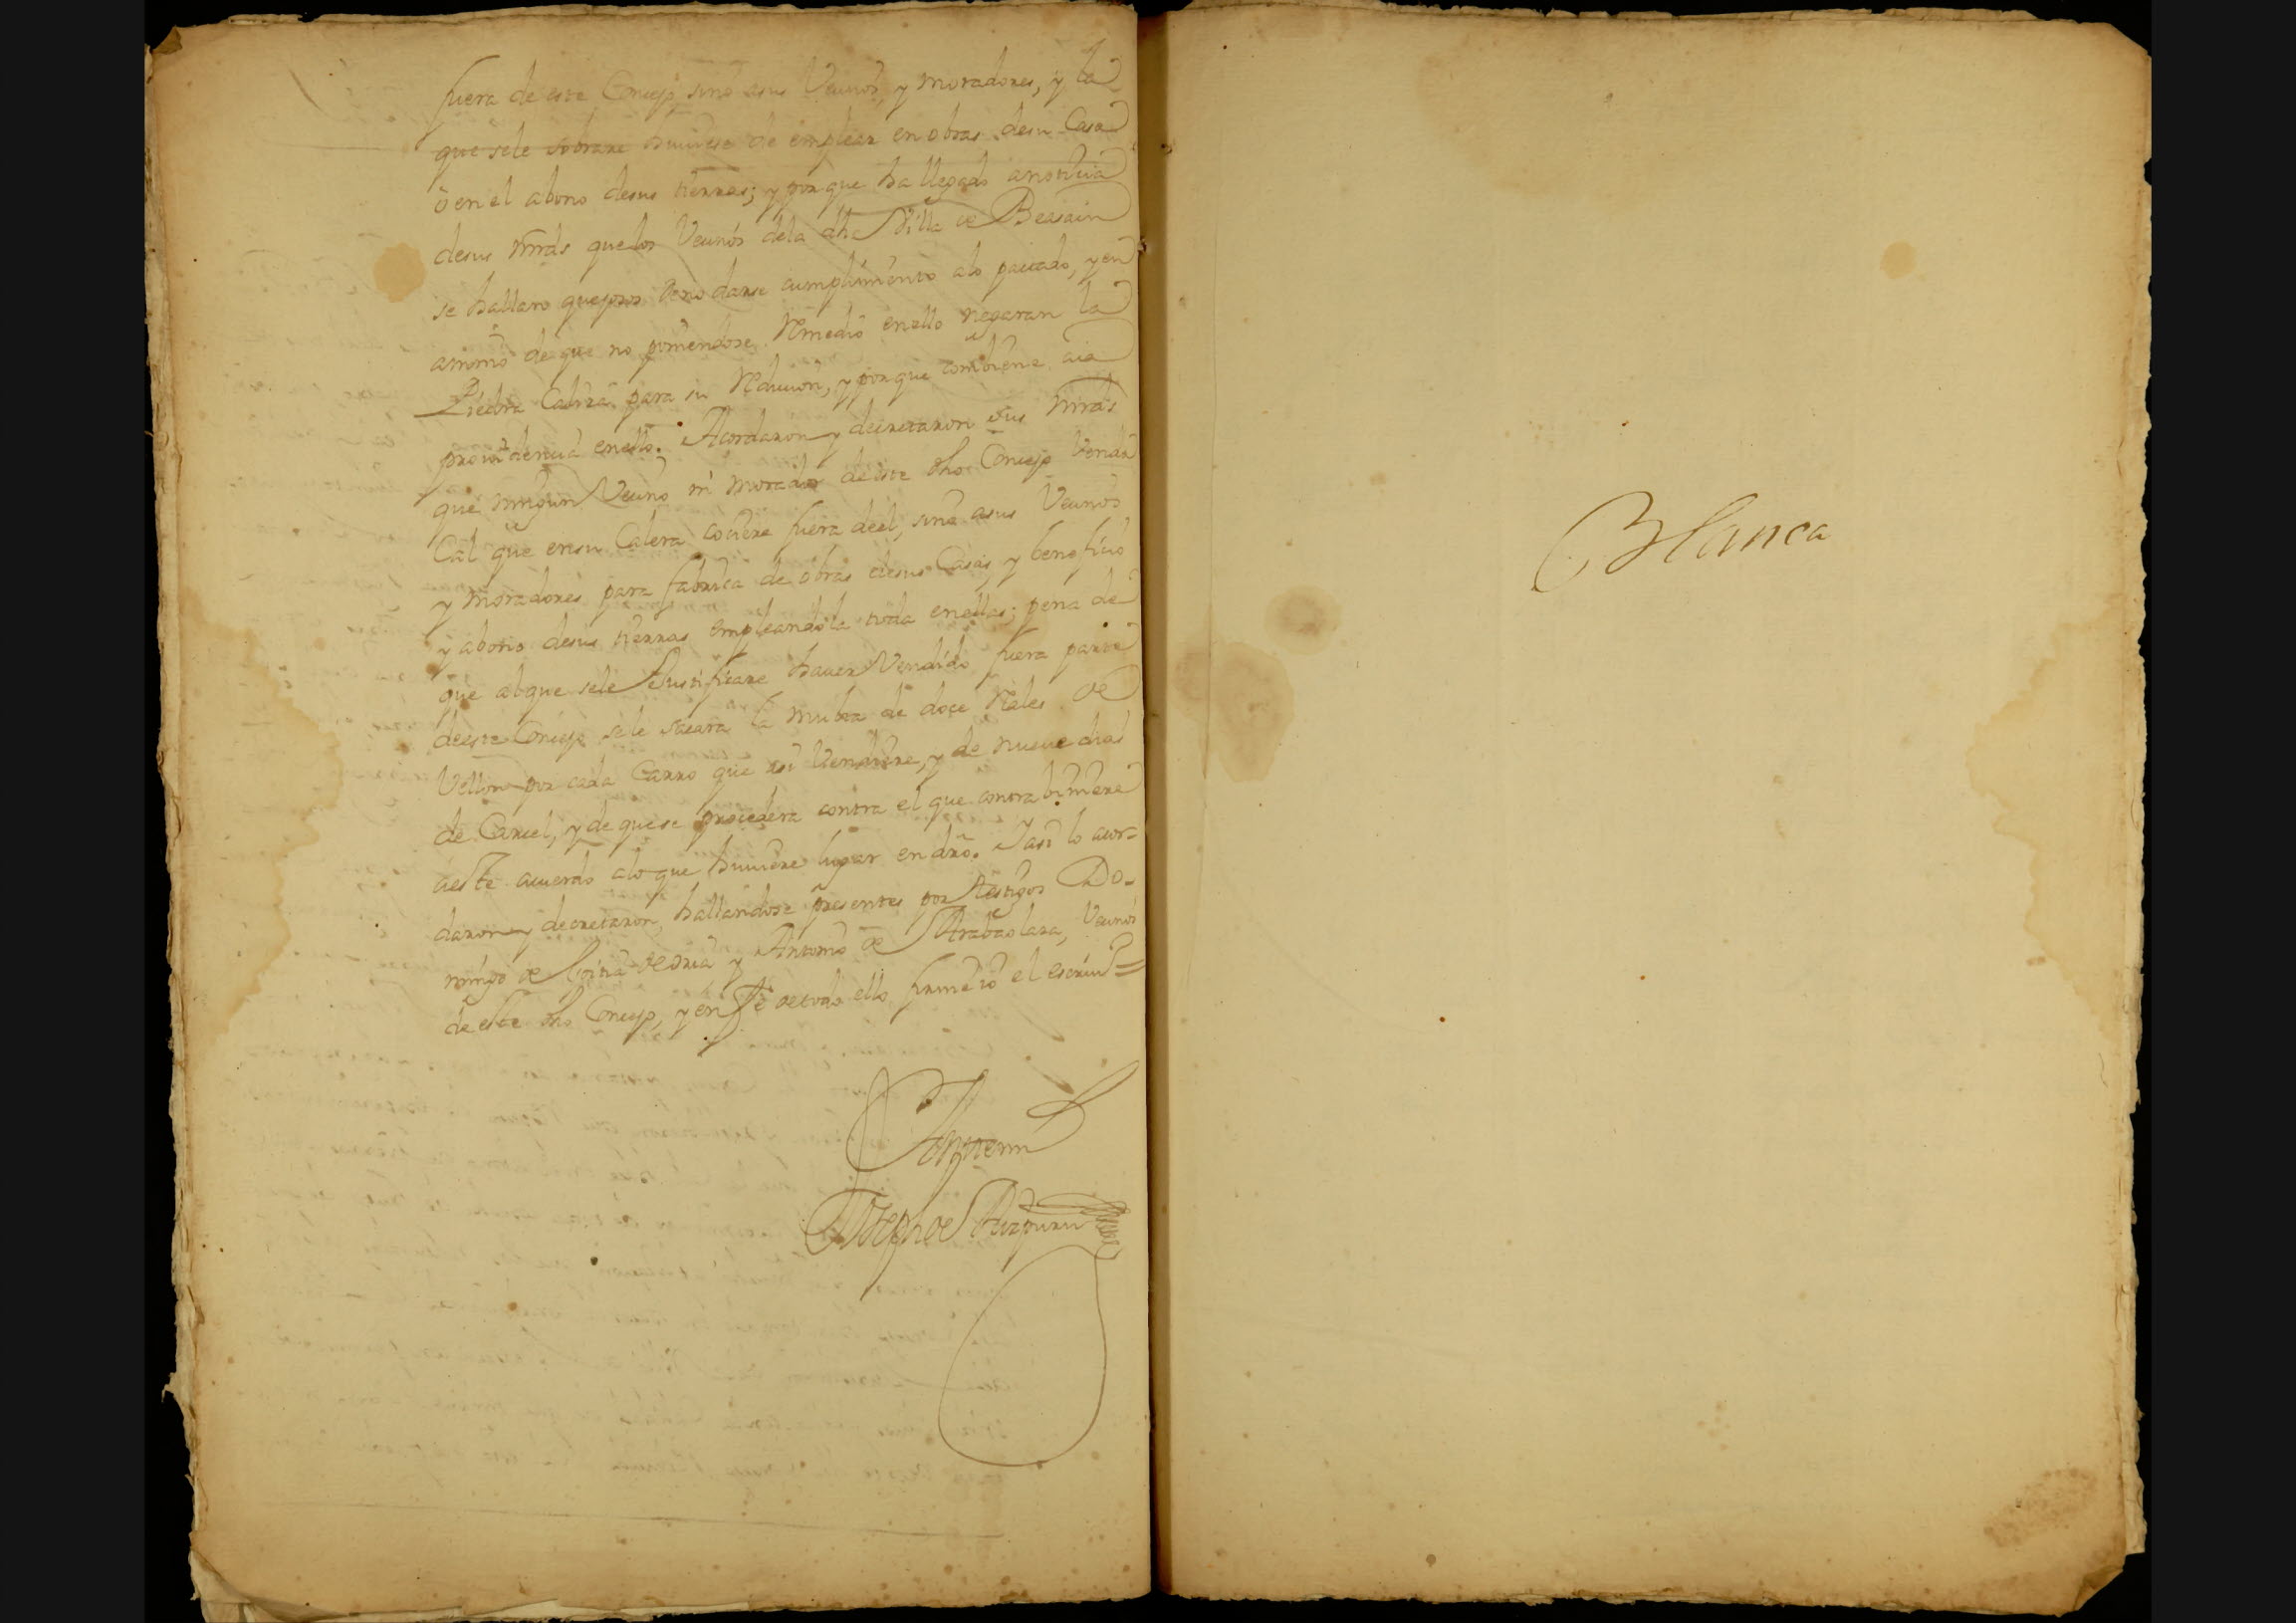 fuera de este Concejo sino asus Vecinos, y moradores, y la
que sele sobrare huuiese de emplear en obras desu Casa
ò en el abono desus tierras; y porque ha llegado anoticia
desus mrds que los Vecinos dela dha Villa de Beasain
se hallan quejosos deno darse cumplimiento alo pactado, y en
animo de que no poniendose Remedio enello negaran la
Piedra Caliza para su Reducion, y porque combiene aia
providencia enello. Acordaron y decretaron sus mrds
que ningun Vecino ni morador de este dho Concejo Venda
Cal que ensu Calera cociere fuera deel, sino asus Vecinos
y moradores para fabrica de obras desus Casas, y beneficio
y abono desus tierras empleandola toda enellas; pena de
que alque sele Justificare hauer Vendido fuera parte
deeste Concejo sele sacara la multa de doce Reales de
Vellon por cada Carro que asi Vendiere, y de nueue dias
de Carcel, y de quese procedera contra el que contrabiniere
aeste acuerdo alo que huuiere lugar en dro. Jasi lo acor=
daron y decretaron, hallandose presentes por testigos Do-
mingo de y Antonio de Arabaolaza, Vecinos
de este dho Concejo, y en Fe detodo ello firme io el escriu.o =
Antemi
Joseph de Aizpuru
Blanca